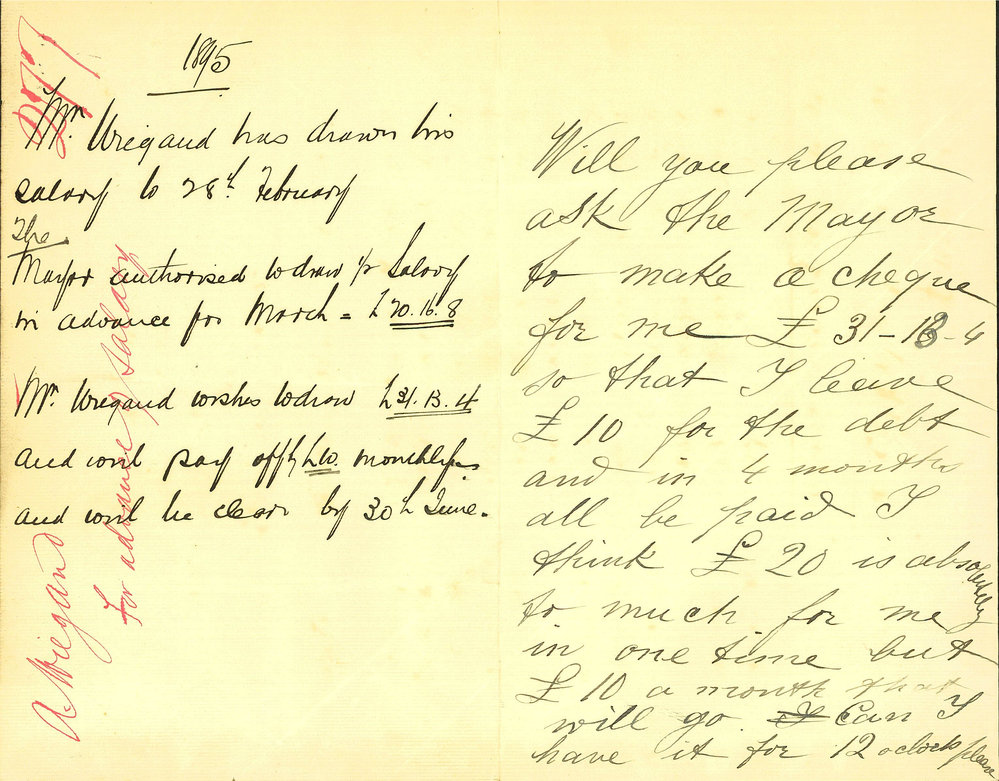 1895
Mr. Wiegand has drawn his
salary to 28th February
The
Mayor authorised to draw Salary
in advance for March = £20.16.8
Mr. Wiegand wishes to draw £31.13.4
and will pay off £10. monthly
and will be clear by 30th June.
A. Wiegand
For advance of Salary
Will you please
ask the Mayor
to make a cheque
for me £ 31-13-4
so that I leave
£ 10 for the debt
and in 4 months
all be paid I
think £ 20 is absolutely
to much for me
in one time but
£ 10 a month that
will go. I Can I
have it for 12 oclock please